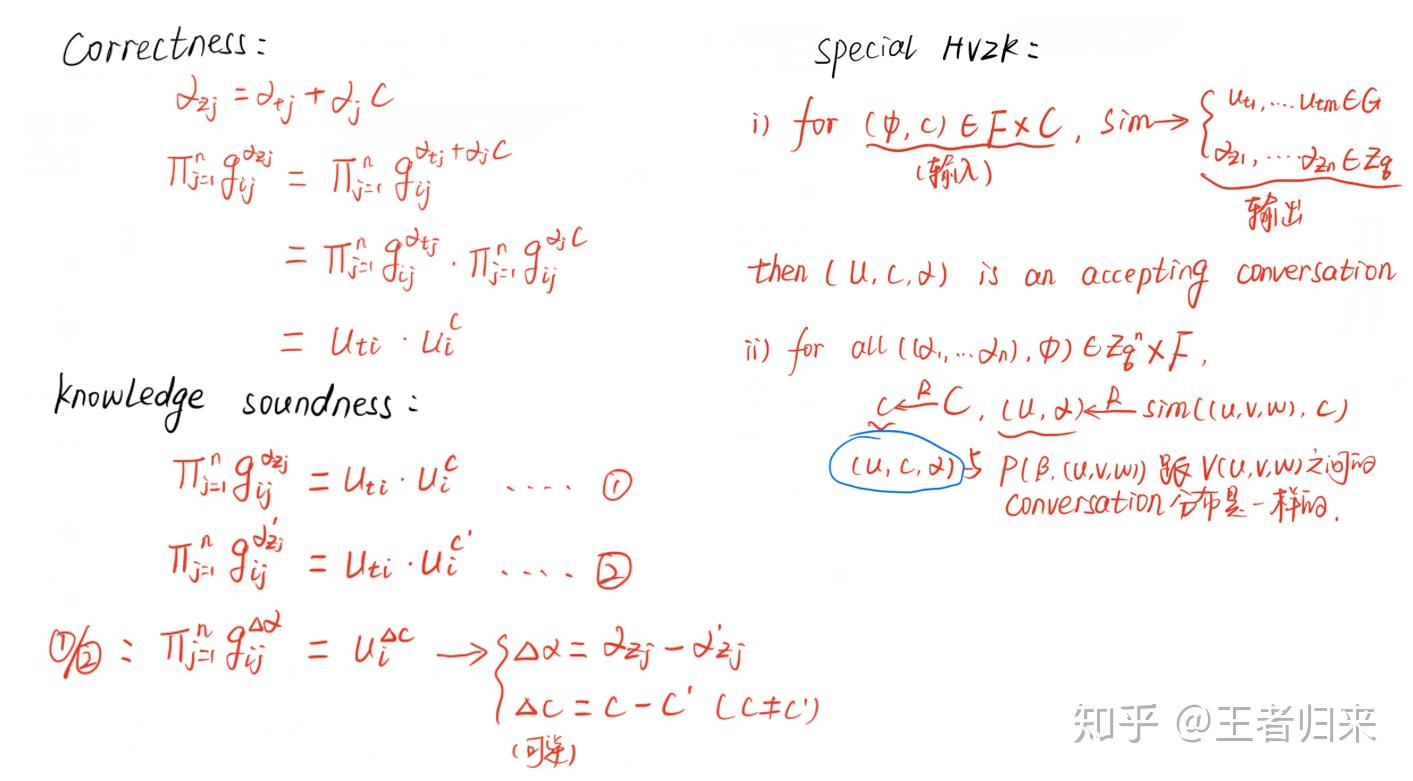 Correctness:
α_{zj} = α_{tj} + α_j c
∏_{j=1}^{n} g_{ij}^{α_{zj}} = ∏_{j=1}^{n} g_{ij}^{α_{tj} + α_j c}
= ∏_{j=1}^{n} g_{ij}^{α_{tj}} · ∏_{j=1}^{n} g_{ij}^{α_j c}
= u_{ti} · u_i^c
knowledge soundness:
∏_{j=1}^{n} g_{ij}^{α_{zj}} = u_{ti} · u_i^c .... ①
∏_{j=1}^{n} g_{ij}^{α'_{zj}} = u_{ti} · u_i^{c'} .... ②
①/②: ∏_{j=1}^{n} g_{ij}^{Δα} = u_i^{Δc} → { Δα = α_{zj} - α'_{zj}
Δc = c - c' (c ≠ c')
(可逆)
special HVZK:
i) for (φ, c) ∈ F × C, sim → { u_{t1}, ... u_{tm} ∈ G
α_{z1}, ... α_{zn} ∈ Z_q
(输入)
输出
then (u, c, α) is an accepting conversation
ii) for all ((α_1, ... α_n), φ) ∈ Z_q^n × F,
c ←^R C, (u, α) ←^R sim((u, v, w), c)
(u, c, α) 与 P(β, (u, v, w)) 跟 V(u, v, w) 之间的
conversation 分布是一样的.
知乎 @王者归来